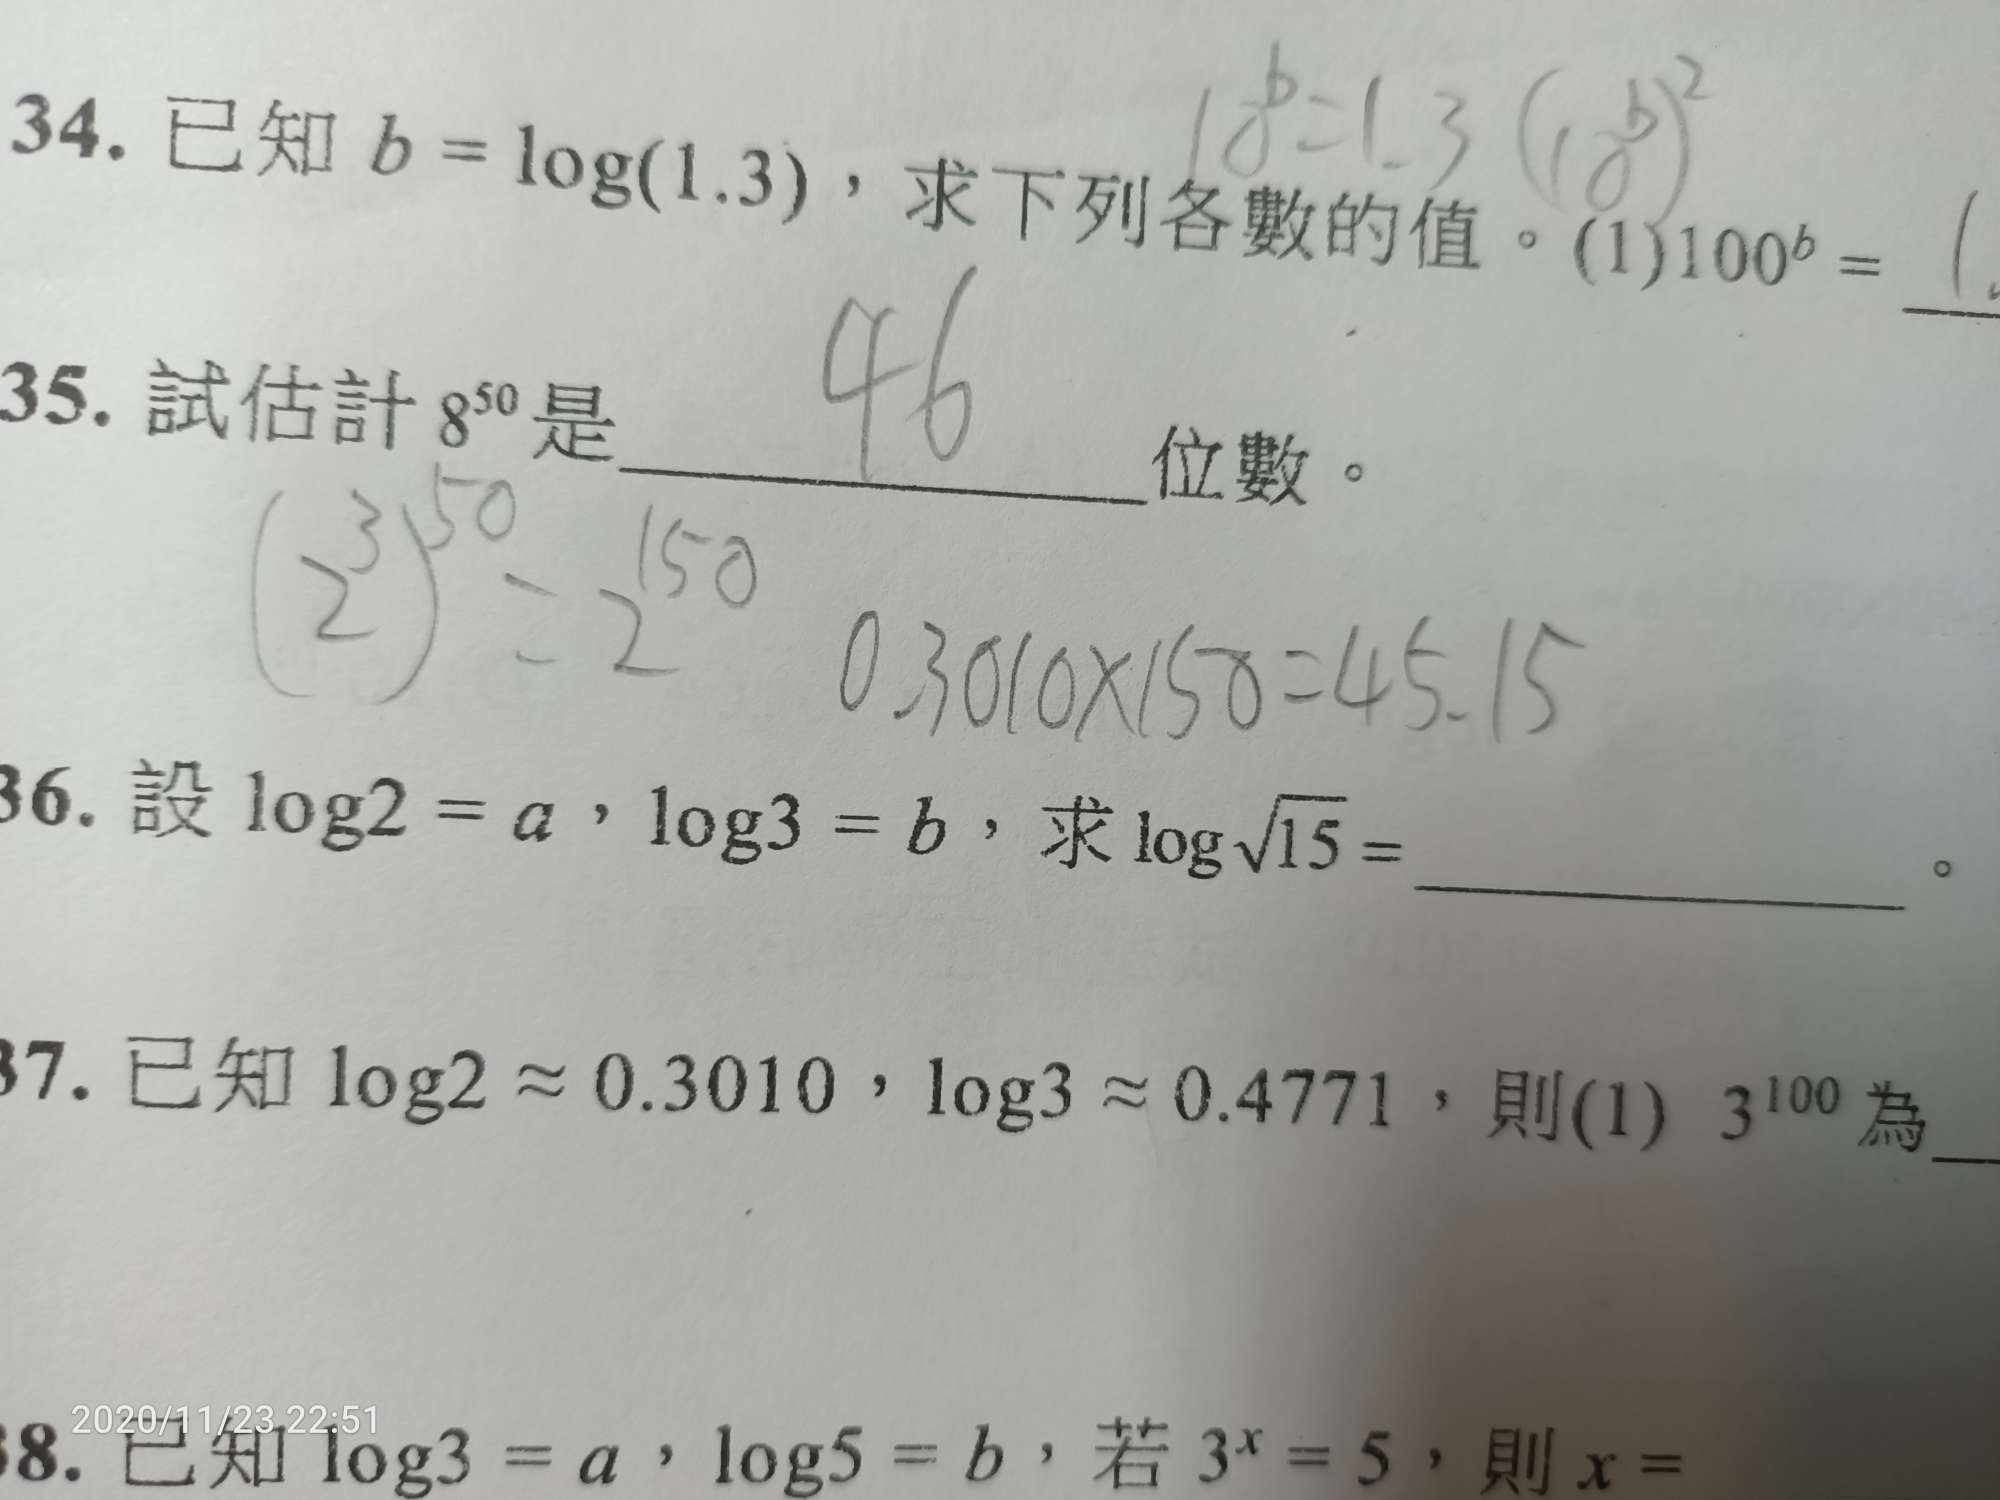 10^b=1.3 (10^b)^2
34. 已知 b = log(1.3),求下列各數的值。(1)100^b = 1.
35. 試估計 8^50 是 46 位數。
(2^3)^50 = 2^150 0.3010×150=45.15
36. 設 log2 = a,log3 = b,求 log√15 = 。
37. 已知 log2 ≈ 0.3010,log3 ≈ 0.4771,則(1) 3^100 為
2020/11/23 22:51
38. 已知 log3 = a,log5 = b,若 3^x = 5,則 x =